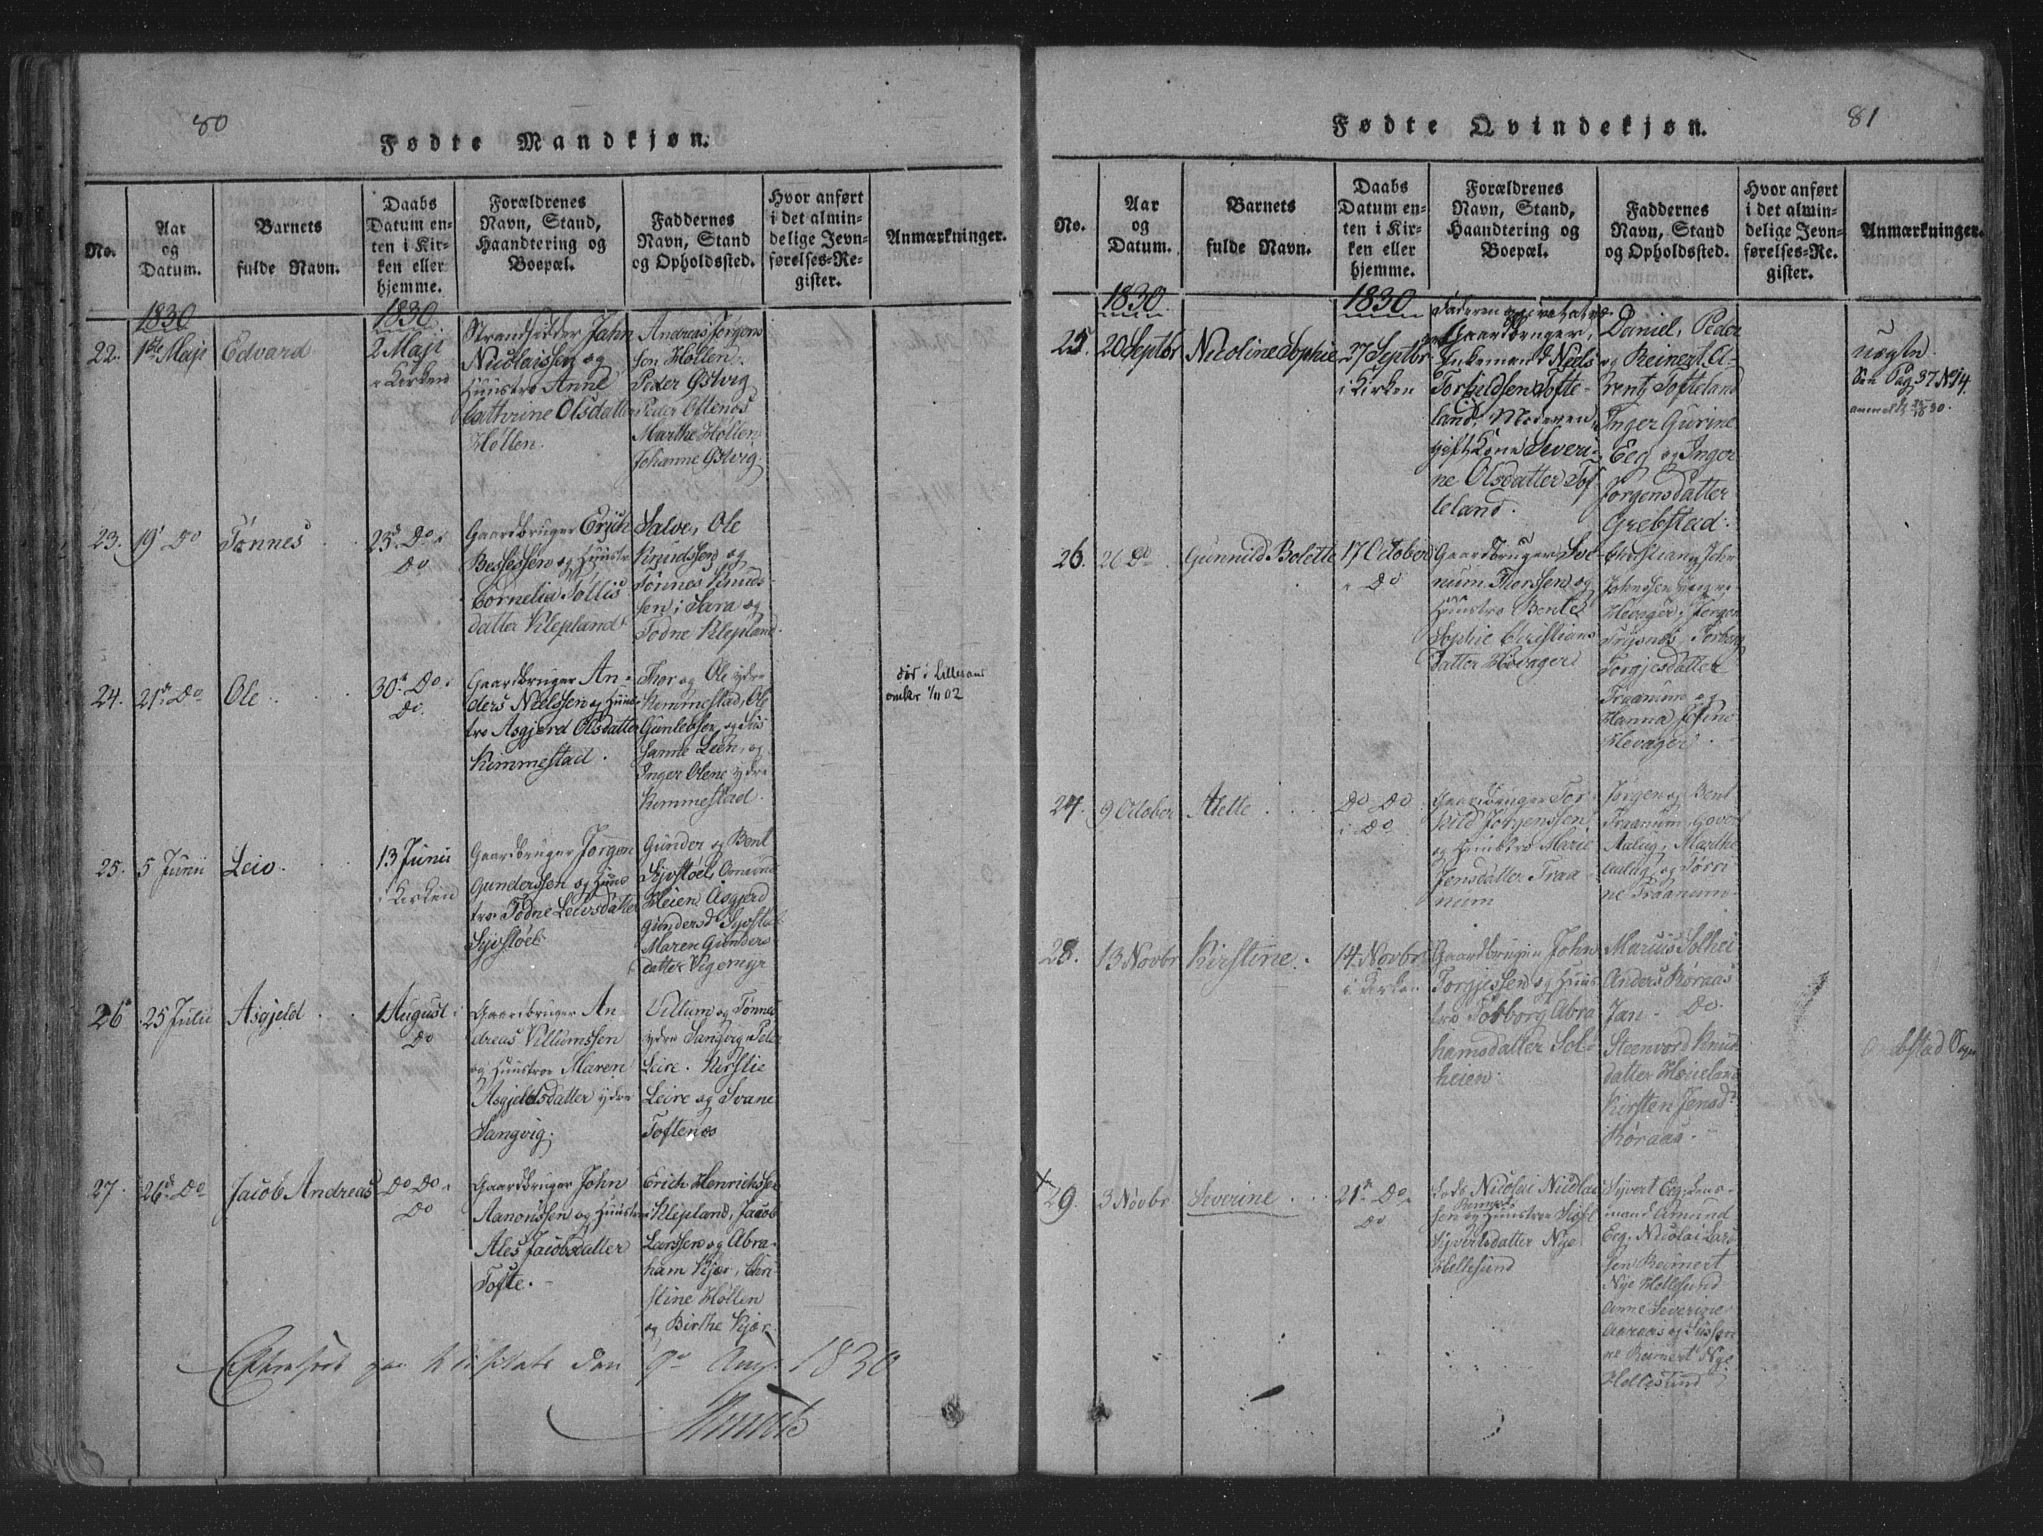 80
Fødte Mandkjøn.
No.
Aar
og
Datum.
Barnets
fulde Navn.
Daabs
Datum en-
ten i Kir-
ken eller
hjemme.
Forældrenes
Navn, Stand,
Haandtering og
Boepæl.
Faddernes
Navn, Stand
og Opholdssted.
Hvor anført
i det almin-
delige Jevn-
førelses-Re-
gister.
Anmærkninger.
1830
1830
22.
1ste Maji
Edvard
2 Maji
i Kirken
Strandsidder Jahn
Nicolaissen og
Huustro Anne
Cathrine Olsdatter
Høllen.
Andreas Jørgens
sen Høllen,
Peder Østvig
Peder Oftenæs
Marthe Høllen
Johanne Østvig.
23.
19 Do
Tønnes
23d Do i
Do
Gaardbruger Erich
Bessessen og Huustro
Cornelia Tollis
datter Klepland
Salve, Ole
Knudssen og
Tønnes Knuds
sen i Sara og
Todne Klepland.
24.
21de Do
Ole
30te Do i
Do.
Gaardbruger An-
ders Nielssen og Huus
tro Asgjerd Olsdatter
Kimmestad.
Thor og Ole ydre
Kimmestad, Ole
Gunlebsen og Sus
sanne Leen, og
Inger Olene ydre
Kimmestad.
død i Lillesand
omkr 1/11 02
25.
5 Junii
Leiv.
13 Junii
i Kirken
Gaardbruger Jørgen
Gunderssen og Huus
tro Todne Leivsdatter
Syvstøel
Gunder og Bent
Syvstøel, Omund
Heien, Asgjerd
Gundersd Syvstøel
Maren Gunders
datter Vigemyr
26
25 Julii
Asgjeld
1 August i
Do
Gaardbruger An
dreas Villumssen
og Huustroe Maren
Asgjeldsdatter ydre
Langvig.
Villum og Tønnes
ydre Langvig, Peder
Leire. Kirstie
Leire og Svane
Toftenæs
27.
26de Do
Jacob Andreas
Do Do i
Do
Gaardbruger John
Aanonssen og Huustroe
Ales Jacobsdatter
Tofte.
Erich Henrichsen
Klepland, Jacob
Larssen og Abra-
ham Kjær, Chri
stine Høllen
og Birthe Kjær
Efterseet paa Visitats den 9de Aug. 1830
81
Fødte Qvindekjøn.
No.
Aar
og
Datum.
Barnets
fulde Navn.
Daabs
Datum en-
ten i Kir-
ken eller
hjemme.
Forældrenes
Navn, Stand,
Haandtering og
Boepæl.
Faddernes
Navn, Stand
og Opholdssted.
Hvor anført
i det almin-
delige Jevn-
førelses-Re-
gister.
Anmærkninger.
1830
1830
25.
20 Septbr
Nicoline Sophie
27 Septbr
i Kirken
Faderen
Gaardbruger,
Enkemand Niels
Torkildsen Tofte-
land, Moderen
gift Kone Severi-
ne Olsdatter Tof
teland.
Daniel, Peder
og Reinert, A-
rent Tofteland
Inger Gurine
Eeg og Inger
Jørgensdatter
Grebstad.
uægte.
See Pag 37 No 14.
anmeldt 30.
26.
26 Do
Gunnild Bolette
17 October
i Do
Gaardbruger Sol-
num Thorssen og
Huustro Bente
Sophie Christians
datter Høvager
Christian, John
Høvager, Jørgen
Trysnes, Torborg
Torgjesdatter
Traanum og
Hanna Josine
Høvager.
27.
9 October
Alette
Do Do
i Do
Gaardbruger Tor
kild Jørgenssen
og Huustro Marie
Jensdatter Traa
num
Jørgen og Bent
Traanum, Govert
Aalvig, Marthe
Aalvig og Torri
ne Traanum.
28.
13 Novbr
Kirstine.
14 Novbr
i Kirken
Gaardbruger John
Torgjessen og Huus
tro Tobborg Abra
hamsdatter Sol-
heien.
Marius Solhei
Anders Røraas
Jan Do.
Steenvord Knuds
datter Høneland
Kirsten Jensd
Røraas.
29.
3 Novbr
Severine
21de Do
Do
Lods Nicolai Nicolai
sen Reimert og Huustroe
Syvertsdatter Nye
Hellesund
Syvert Eeg, Lens-
mand Amund
Eeg, Nicolai Lars
sen Reimert
Nye Hellesund
Anne Severine
Aaraas og Susan
ne Reimert Nye
Hellesund